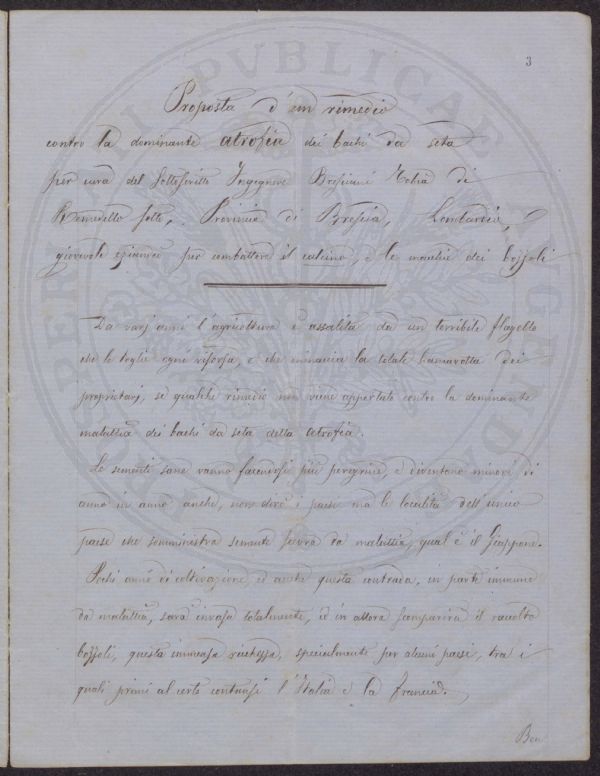 3
Proposta d'un rimedio
contro la dominante atrofia dei bachi da seta
per cura del Sottoscritto Ingegnere Bresciani Tobia di
Benedetto Sotto, Provincia di Brescia, Lombardia,
giovevole eziandio per combattere il calcino, e le macchie dei bozzoli
Da varj anni l'agricoltura è assalita da un terribile flagello
che le toglie ogni risorsa, e che minaccia la totale bancarotta dei
proprietarj, se qualche rimedio non viene apportato contro la dominante
malattia dei bachi da seta detta atrofia.
Le sementi sane vanno facendosi più peregrine, e diventano minori di
anno in anno anche, non dirò i paesi ma le località dell'unico
paese che somministra semente scevra da malattia, qual'è il Giappone.
Pochi anni di coltivazione, ed anche questa contrada, in parte immune
da malattia, sarà invasa totalmente, ed in allora scomparirà il raccolto
bozzoli, questa immensa ricchezza, specialmente per alcuni paesi, tra i
quali primi al certo contansi l'Italia e la Francia.
Ben